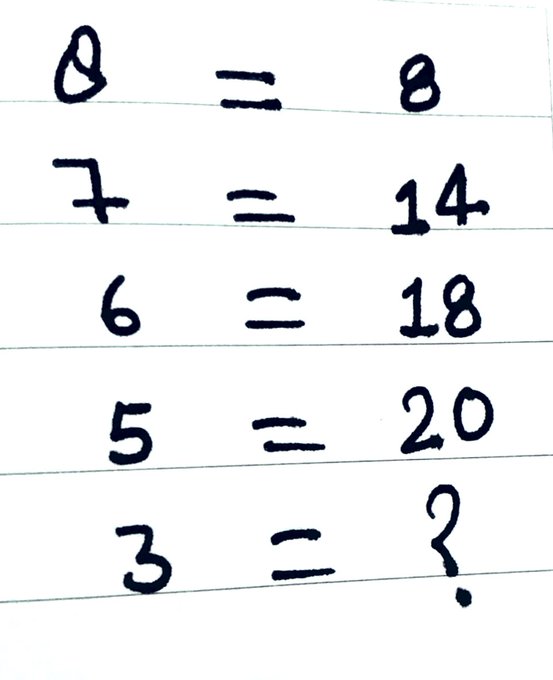 8 = 8
7 = 14
6 = 18
5 = 20
3 = ?